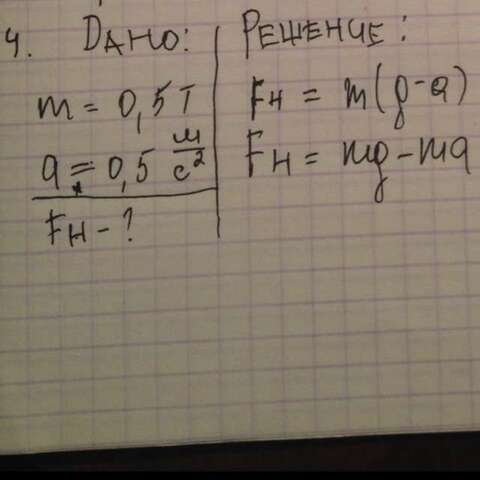 4. Дано:
m = 0,5 Т
a = 0,5 м/с²
Fн - ?
Решение:
Fн = m(g-a)
Fн = mg-ma